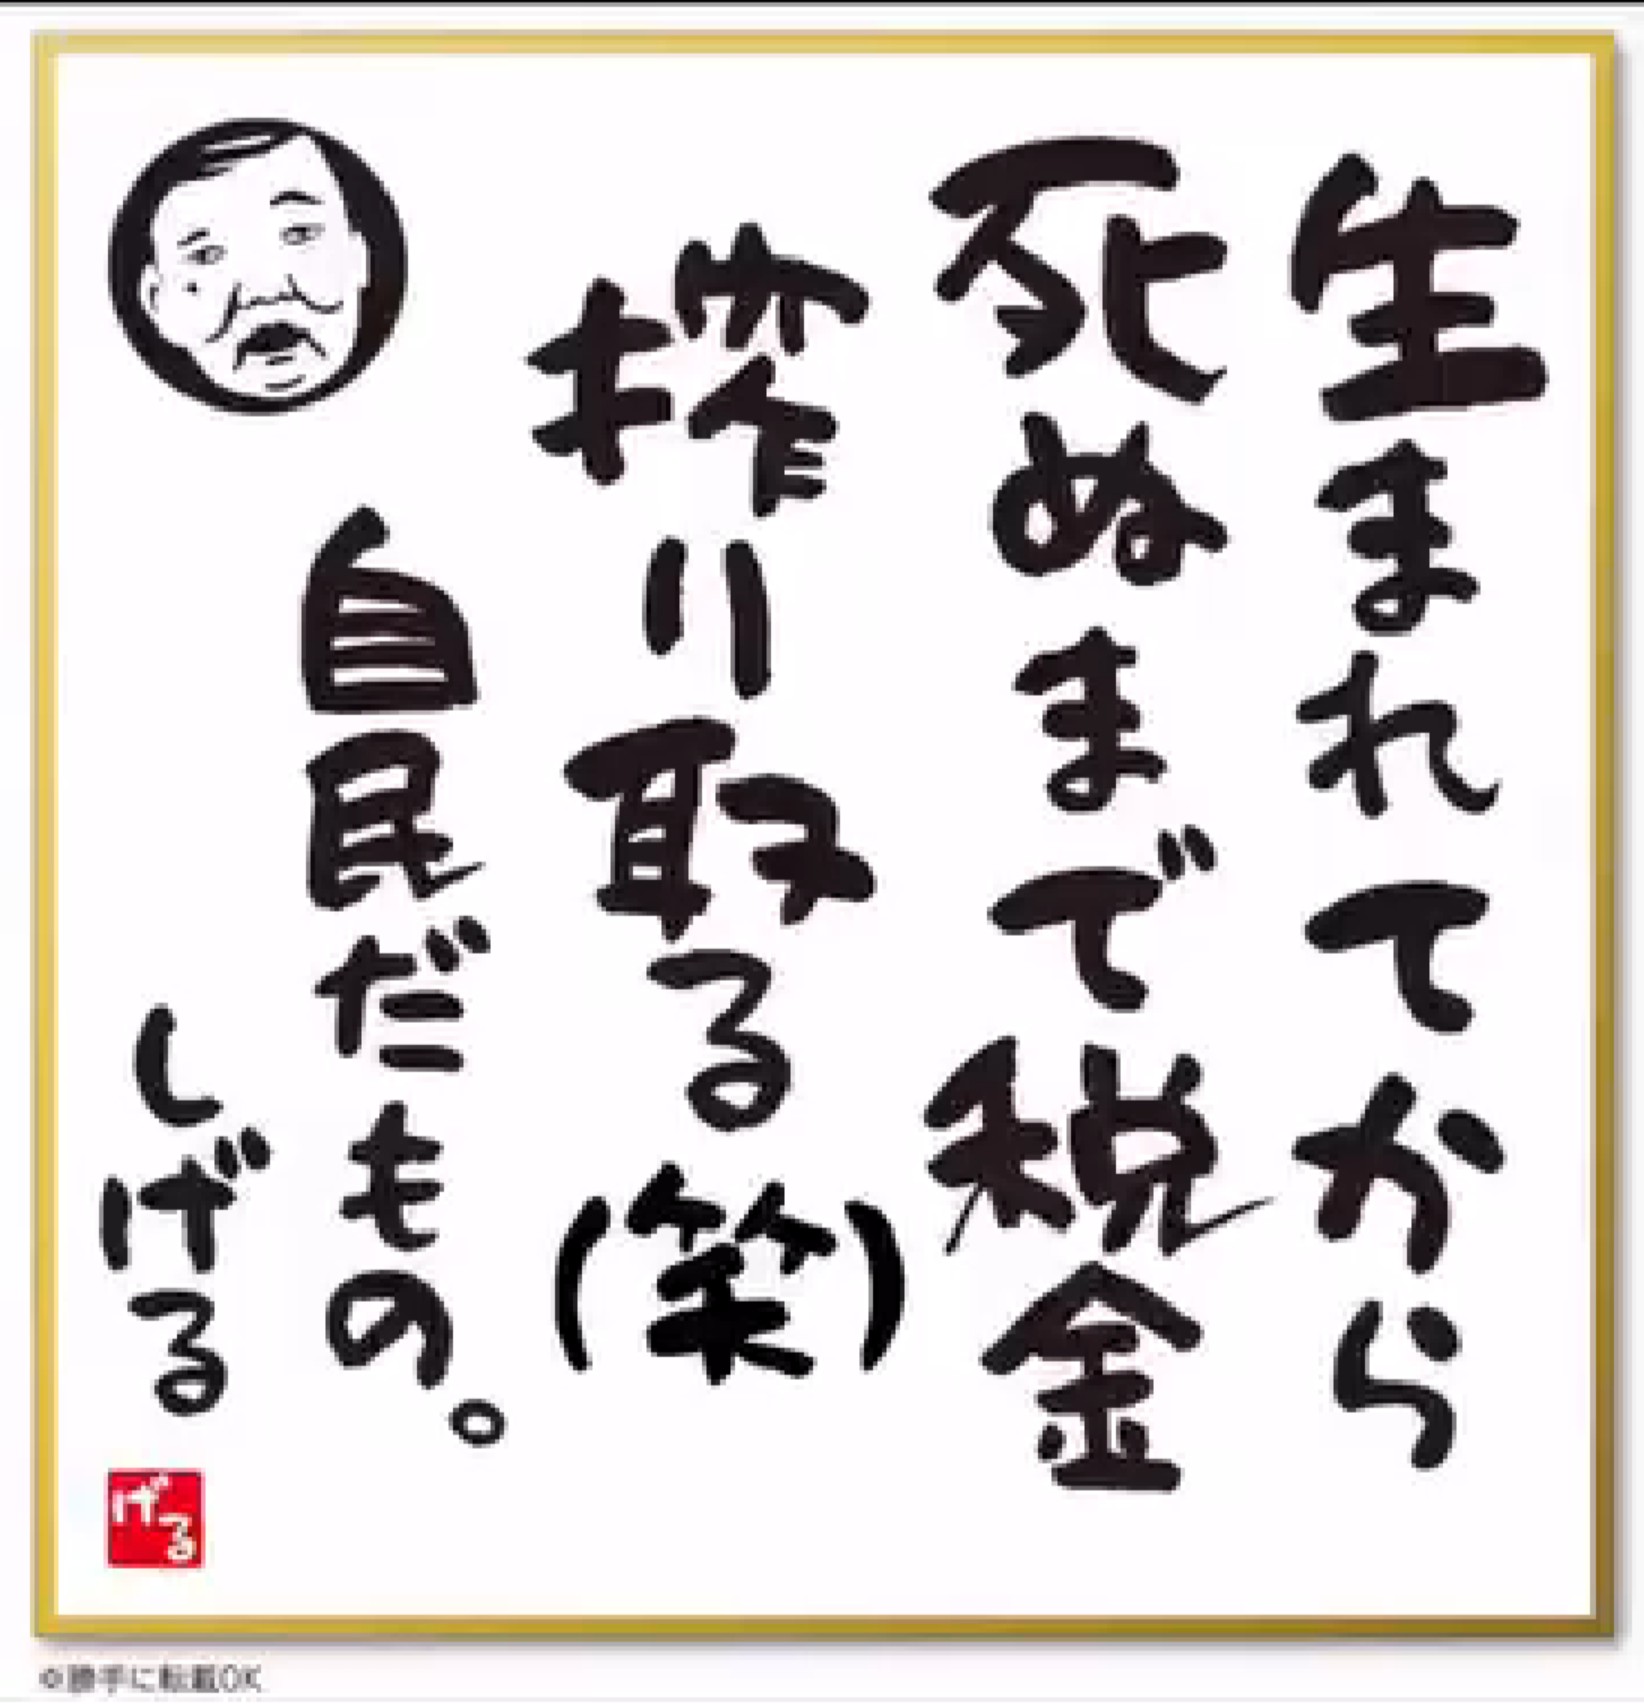 生まれてから
死ぬまで税金
搾り取る(笑)
自民だもの。
しげる
げる
※勝手に転載OK